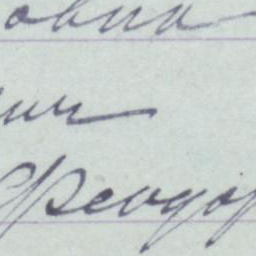 овна
ич
Феодор